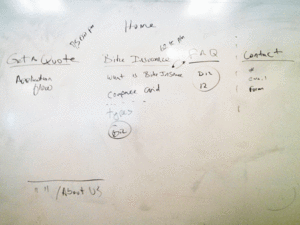 Home
Get A Quote
Application
(Now)
Bike Insurance
What is Bike Insurance
Compare Grid
Types
Biz
FAQ
Biz
12
Contact
#
Email
Form
"" / About Us